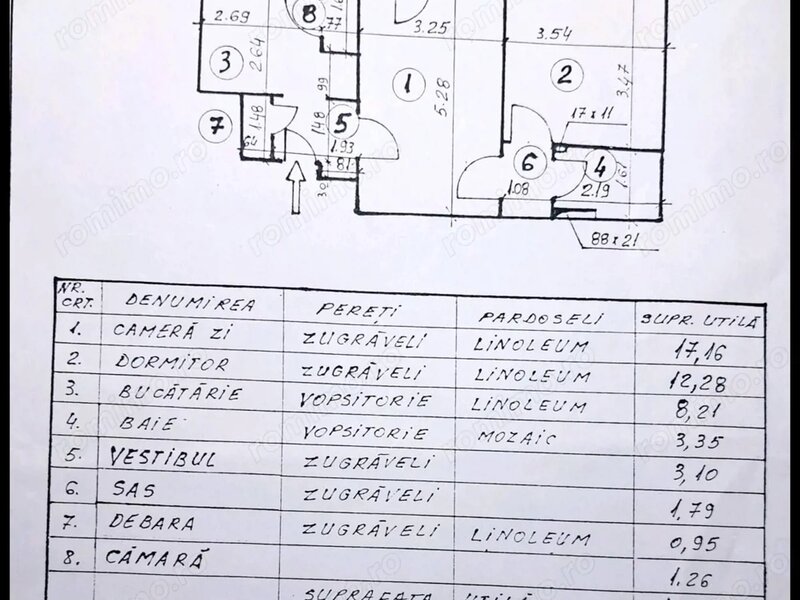 2.69
8
77
3.25
3.54
3
2.64
1
5.28
2
3.47
99
17x11
7
1.48
148
5
64
1.93
6
4
1.61
81
30
1.08
2.19
88x21
NR. CRT. DENUMIREA PEREȚI PARDOSELI SUPR. UTILĂ
1. CAMERĂ ZI ZUGRĂVELI LINOLEUM 17,16
2. DORMITOR ZUGRĂVELI LINOLEUM 12,28
3. BUCĂTĂRIE VOPSITORIE LINOLEUM 8,21
4. BAIE VOPSITORIE MOZAIC 3,35
5. VESTIBUL ZUGRĂVELI 3,10
6. SAS ZUGRĂVELI 1.79
7. DEBARA ZUGRĂVELI LINOLEUM 0,95
8. CĂMARĂ 1.26
SUPRAFAȚA UTILĂ
romimo.ro